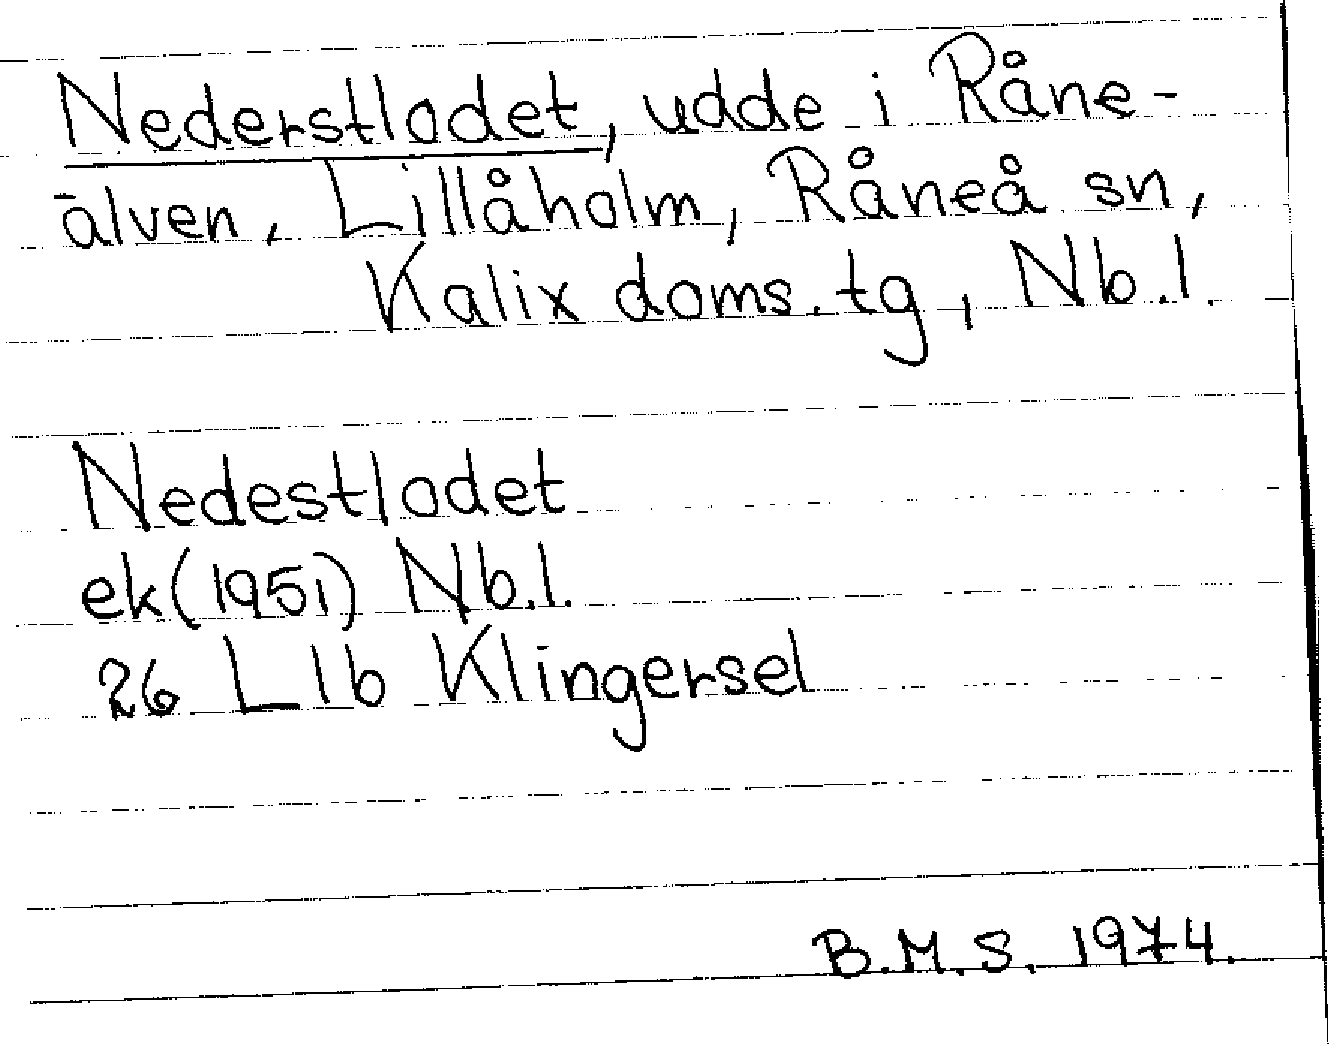 Nederstlodet, udde i Råne-
älven, Lillåholm, Råneå sn,
Kalix doms.tg, Nb.l.
Nedestlodet
ek(1951) Nb.l.
26 L1b Klingersel
B.M.S. 1974.